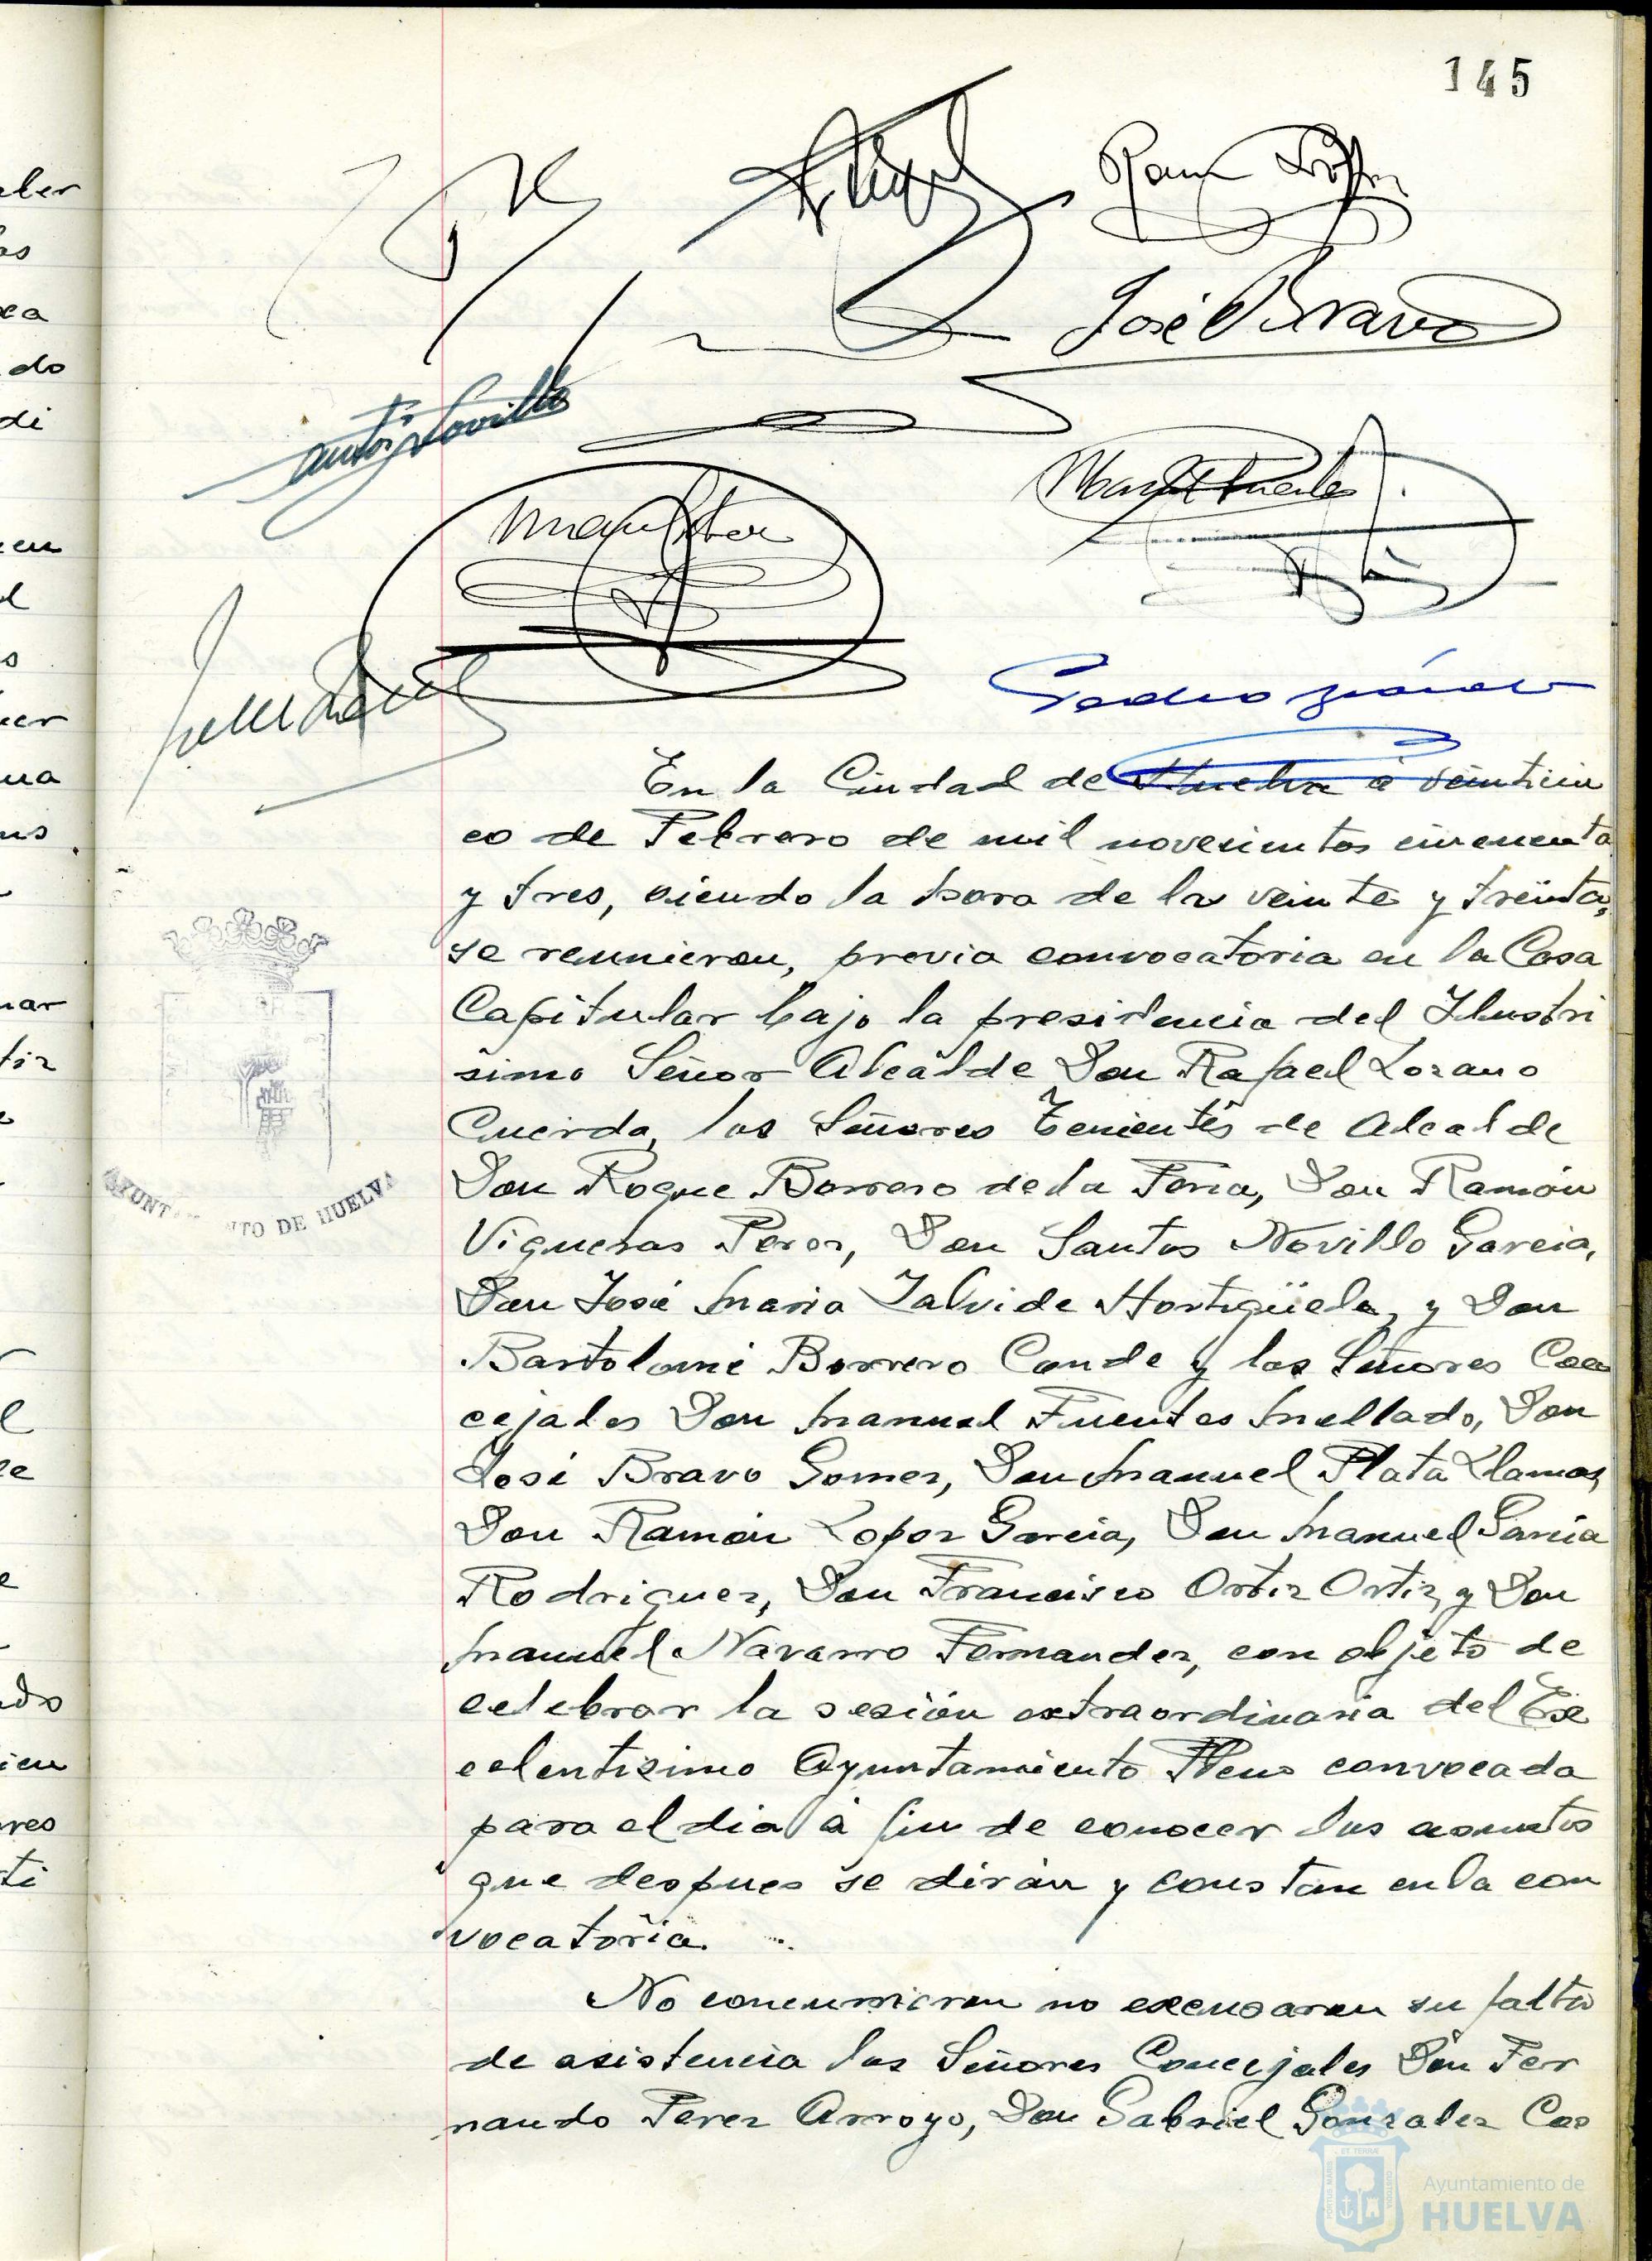 145
José Bravo
En la Ciudad de Huelva a veinticin
co de Febrero de mil novecientos cincuenta
y tres, siendo la hora de las veinte y treinta,
se reunieron, previa convocatoria en la Casa
Capitular bajo la presidencia del Ilustri
simo Señor Alcalde Don Rafael Lozano
Cuerda, los Señores Tenientes de Alcalde
Don Roque Borrero de la Feria, Don Ramón
Vigueras Perez, Don Santos Novillo Garcia,
Don José Maria Zalvide Hortigüela, y Don
Bartolomé Borrero Conde y los Señores Con
cejales Don Manuel Fuentes Mellado, Don
José Bravo Gomez, Don Manuel Plata Llamas,
Don Ramón Lopez Garcia, Don Manuel Garcia
Rodriguez, Don Francisco Ortiz Ortiz, y Don
Manuel Navarro Fernandez, con objeto de
celebrar la sesión extraordinaria del Ex
celentisimo Ayuntamiento Pleno convocada
para el dia a fin de conocer los asuntos
que despues se dirán y constan en la con
vocatoria.
No concurrieron no excusaron su falta
de asistencia los Señores Concejales Don Fer
nando Perez Arroyo, Don Gabriel Gonzalez Cas
AYUNT NTO DE HUELVA
Ayuntamiento de
HUELVA